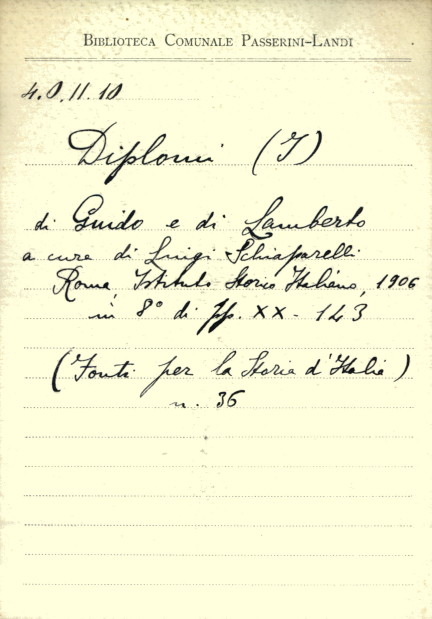 BIBLIOTECA COMUNALE PASSERINI-LANDI
4.O.11.10
Diplomi (I)
di Guido e di Lamberto
a cura di Luigi Schiaparelli
Roma, Istituto Storico Italiano, 1906
in 8° di pp. XX-143
(Fonti per la Storia d'Italia)
n. 36